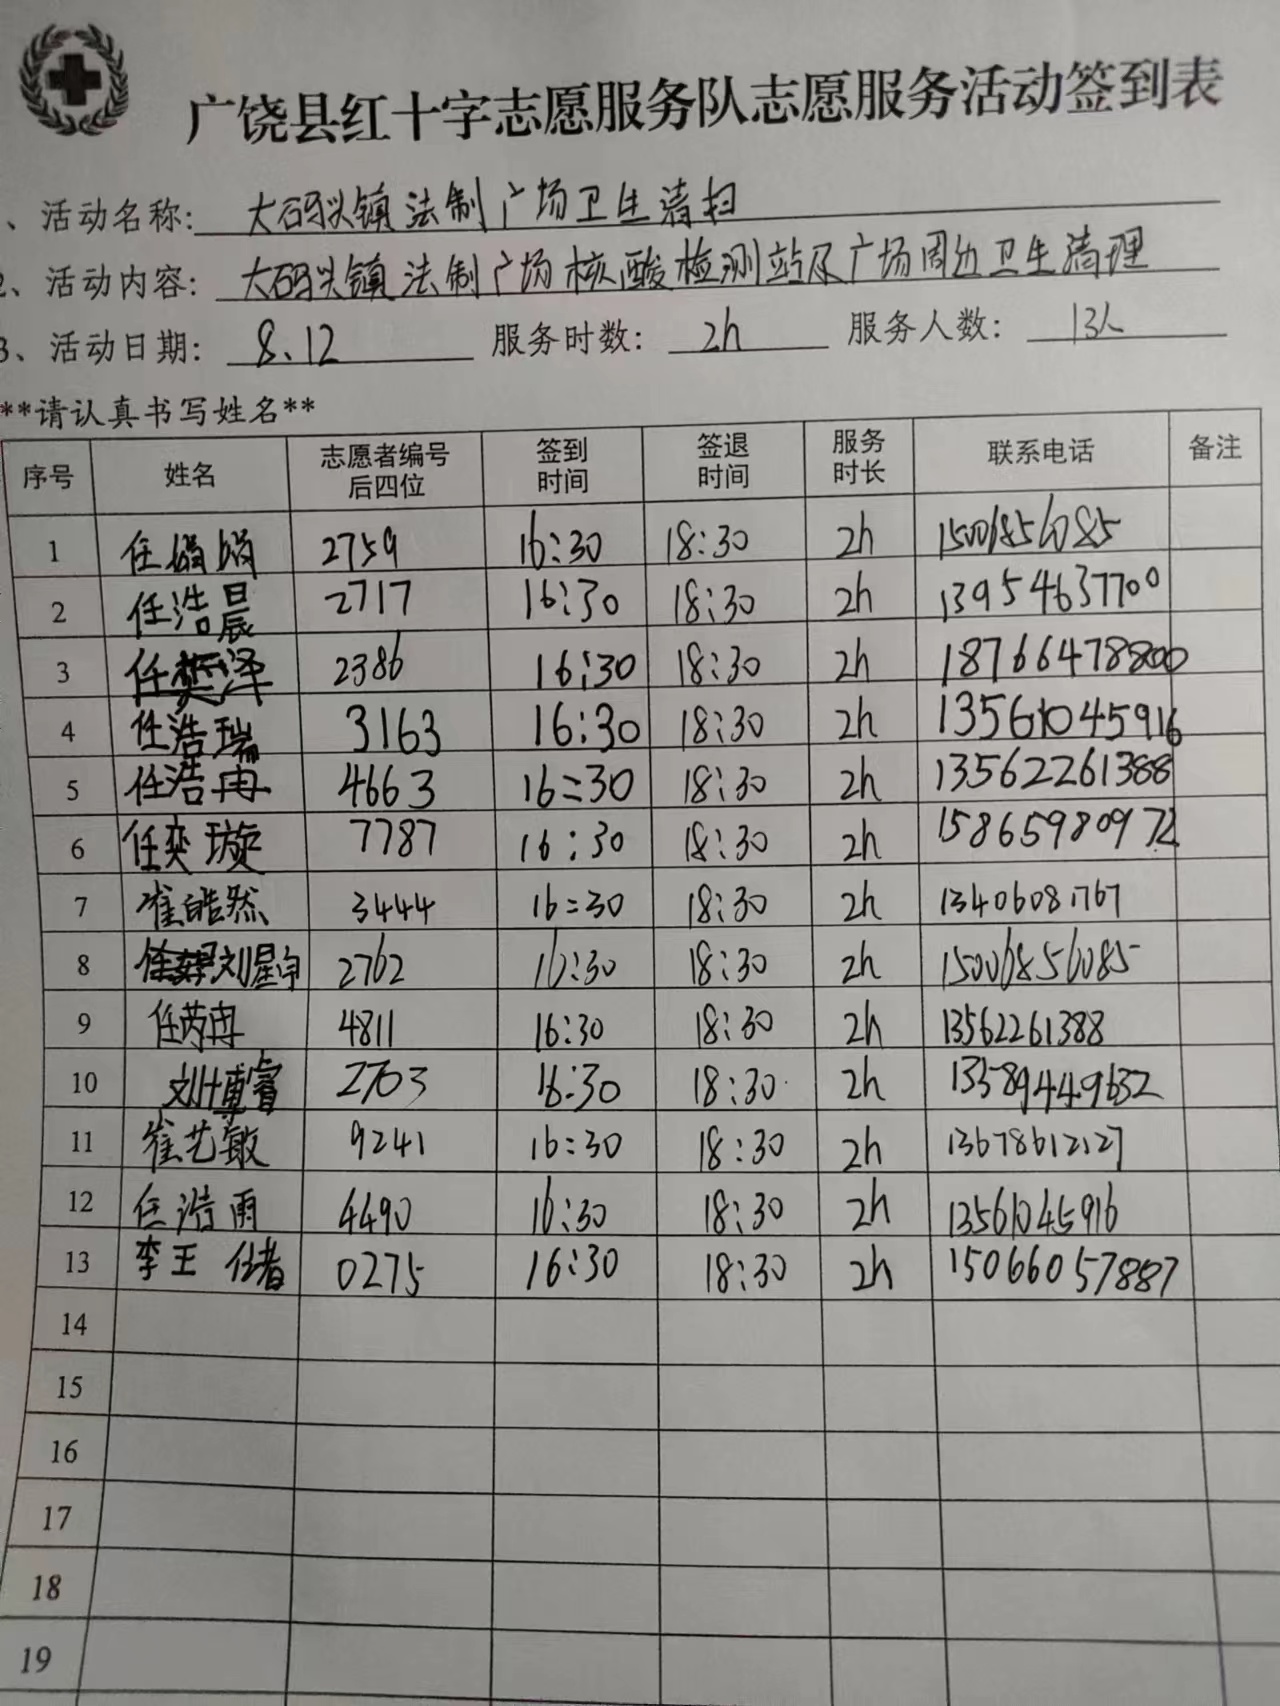 广饶县红十字志愿服务队志愿服务活动签到表
、活动名称: 大码头镇法制广场卫生清扫
2、活动内容: 大码头镇法制广场核酸检测站及广场周边卫生清理
3、活动日期: 8.12 服务时数: 2h 服务人数: 13人
**请认真书写姓名**
序号 姓名 志愿者编号后四位 签到时间 签退时间 服务时长 联系电话 备注
1 任娟娟 2759 16:30 18:30 2h 15006856085
2 任浩晨 2717 16:30 18:30 2h 13954637700
3 任奕泽 2386 16:30 18:30 2h 18766478800
4 任浩瑞 3163 16:30 18:30 2h 13561045916
5 任浩冉 4663 16:30 18:30 2h 13562261388
6 任奕璇 7787 16:30 18:30 2h 15865980972
7 崔皓然 3444 16:30 18:30 2h 13406081767
8 刘星宇 2762 16:30 18:30 2h 15006856085
9 任芮冉 4811 16:30 18:30 2h 13562261388
10 刘博睿 2703 16:30 18:30 2h 13589449632
11 崔艺敏 9241 16:30 18:30 2h 13678612127
12 任浩雨 4490 16:30 18:30 2h 13561045916
13 李王 0275 16:30 18:30 2h 15066057887
14
15
16
17
18
19